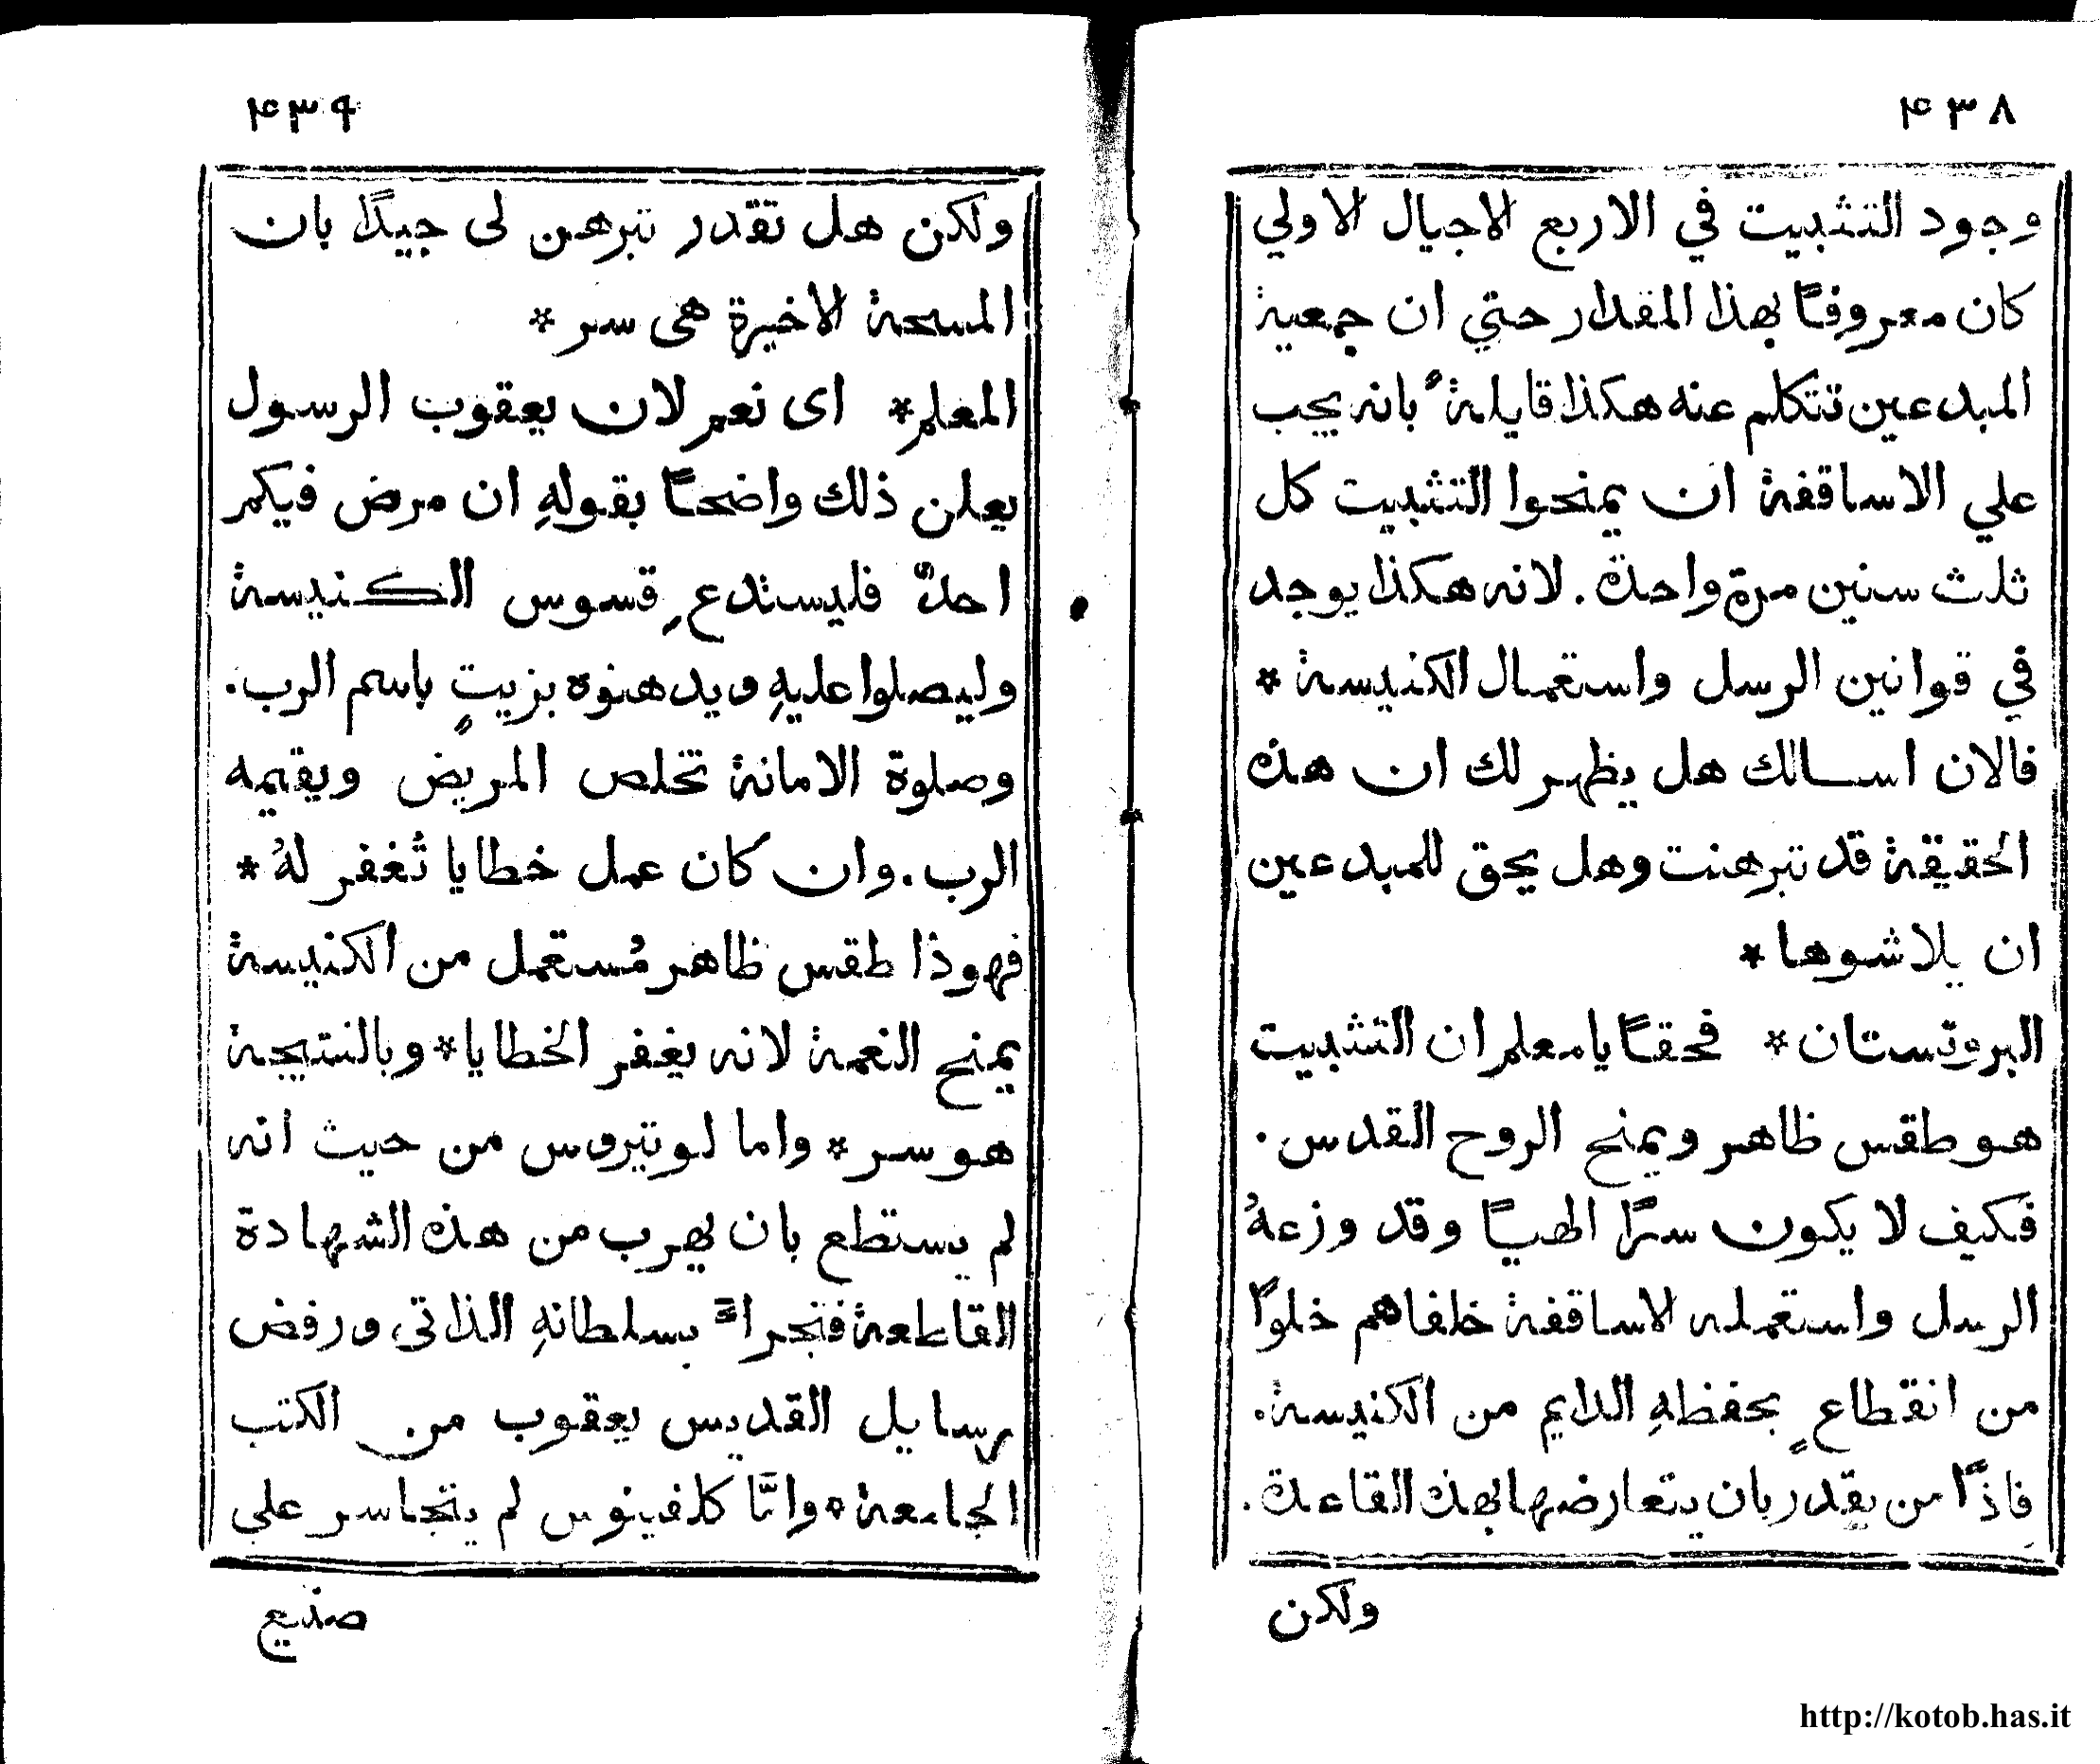 ۴۳۸
وجود التثبيت في الاربع الاجيال الاولي
كان معروفًا بهذا المقدار حتي ان جمعية
المبدعين تتكلم عنه هكذا قايلةً بانه يجب
علي الاساقفة ان يمنحوا التثبيت كل
ثلث سنين مرة واحدة. لانه هكذا يوجد
في قوانين الرسل واستعمال الكنيسة *
فالان اسالك هل يظهر لك ان هذه
الحقيقة قد تبرهنت وهل يحق للمبدعين
ان يلاشوها *
البروتستان * فحقًا يا معلم ان التثبيت
هو طقس ظاهر ويمنح الروح القدس.
فكيف لا يكون سرًا الهيًا وقد وزعهُ
الرسل واستعمله الاساقفة خلفاهم خلوًا
من انقطاعٍ بحفظهِ الدايم من الكنيسة.
فاذًا من يقدر بان يتعارضها بهذه القاعدة.
ولكن
۴۳۹
ولكن هل تقدر تبرهن لى جيدًا بان
المسحة الاخيرة هى سر *
المعلم * اى نعم لان يعقوب الرسول
يعلن ذلك واضحًا بقولهِ ان مرض فيكم
احدٌ فليستدعِ قسوس الكنيسة
وليصلوا عليهِ ويدهنوه بزيتٍ باسم الرب.
وصلوة الامانة تخلص المريض ويقيمه
الرب. وان كان عمل خطايا تُغفر لهُ *
فهوذا طقس ظاهر مُستعمل من الكنيسة
يمنح النعمة لانه يغفر الخطايا * وبالنتيجة
هو سر * واما لوتيروس من حيث انه
لم يستطع بان يهرب من هذه الشهادة
القاطعة فتجراءً بسلطانهِ الذاتى ورفض
رسايل القديس يعقوب من الكتب
الجامعة * وامّا كلفينوس لم يتجاسر علي
صنيع
http://kotob.has.it